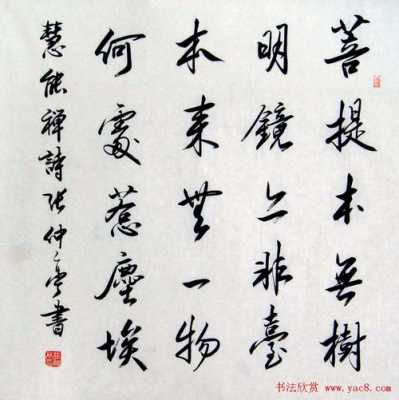 菩提本無樹
明鏡亦非臺
本来無一物
何處惹塵埃
慧能禅詩张仲亭書
书法欣赏
www.yac8.com